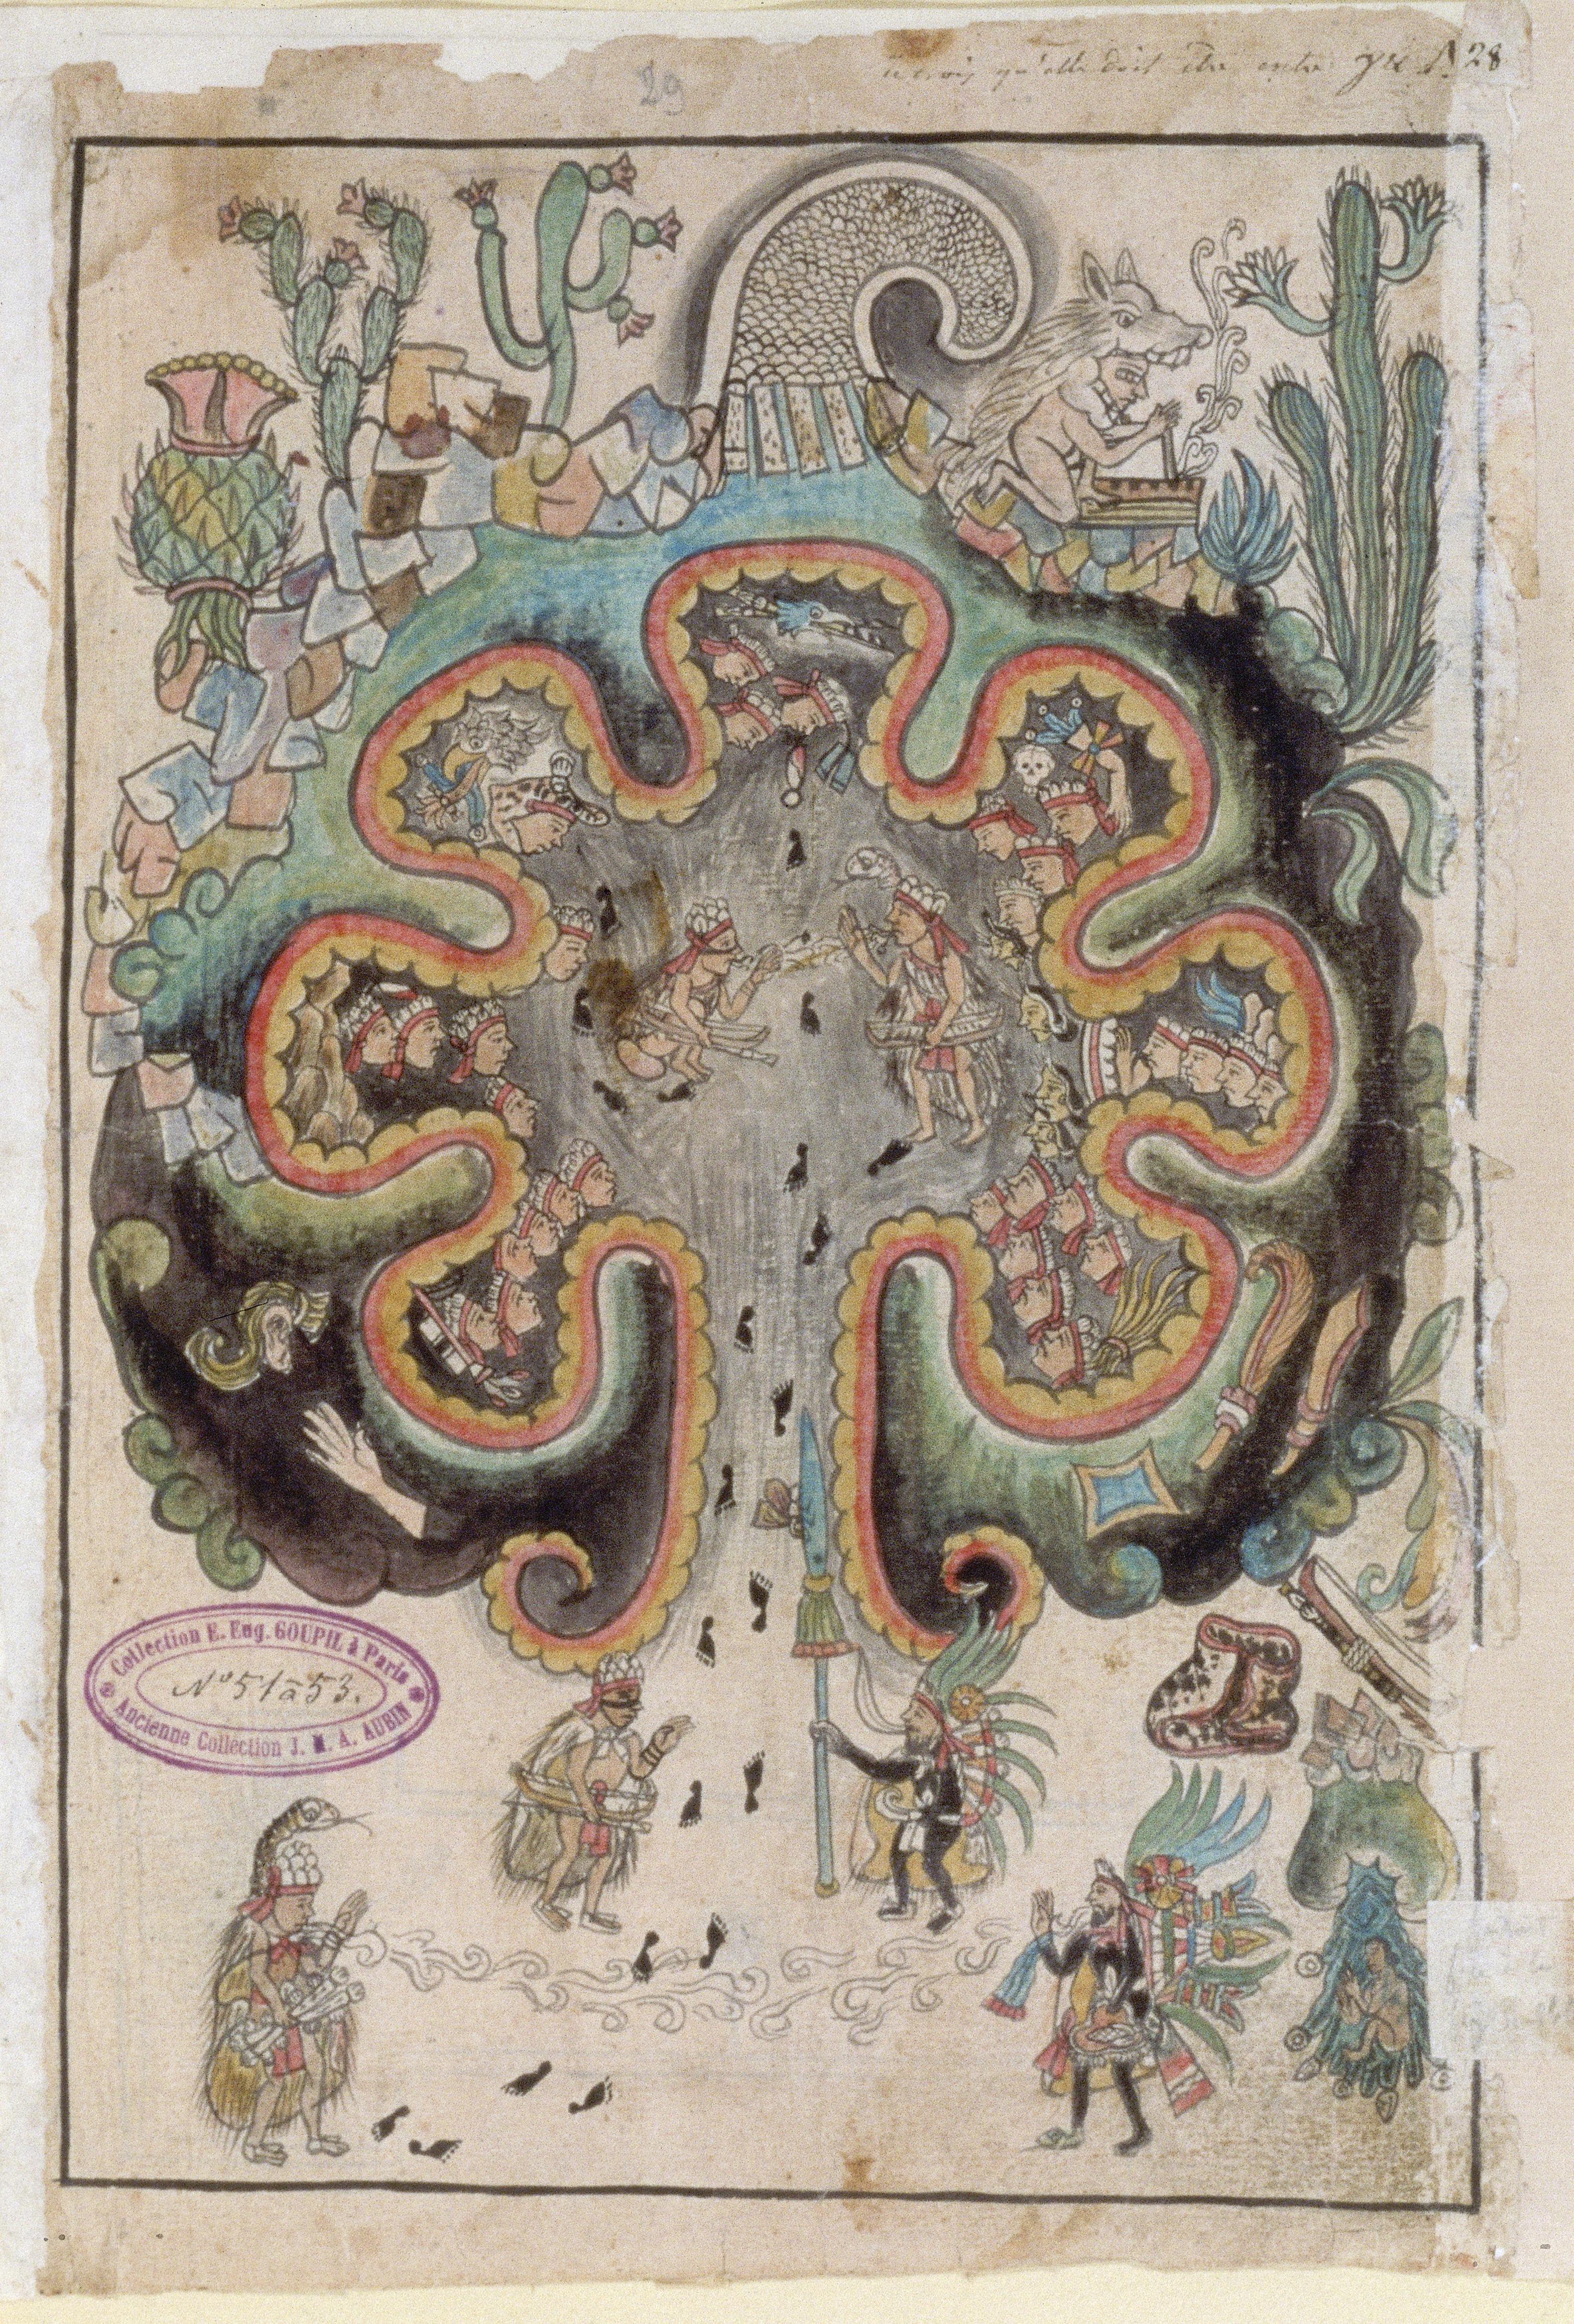 29
qu'elle doit être entre
28
Collection E. Eug. GOUPIL à Paris
Nº 51 à 53.
Ancienne Collection J. M. A. AUBIN